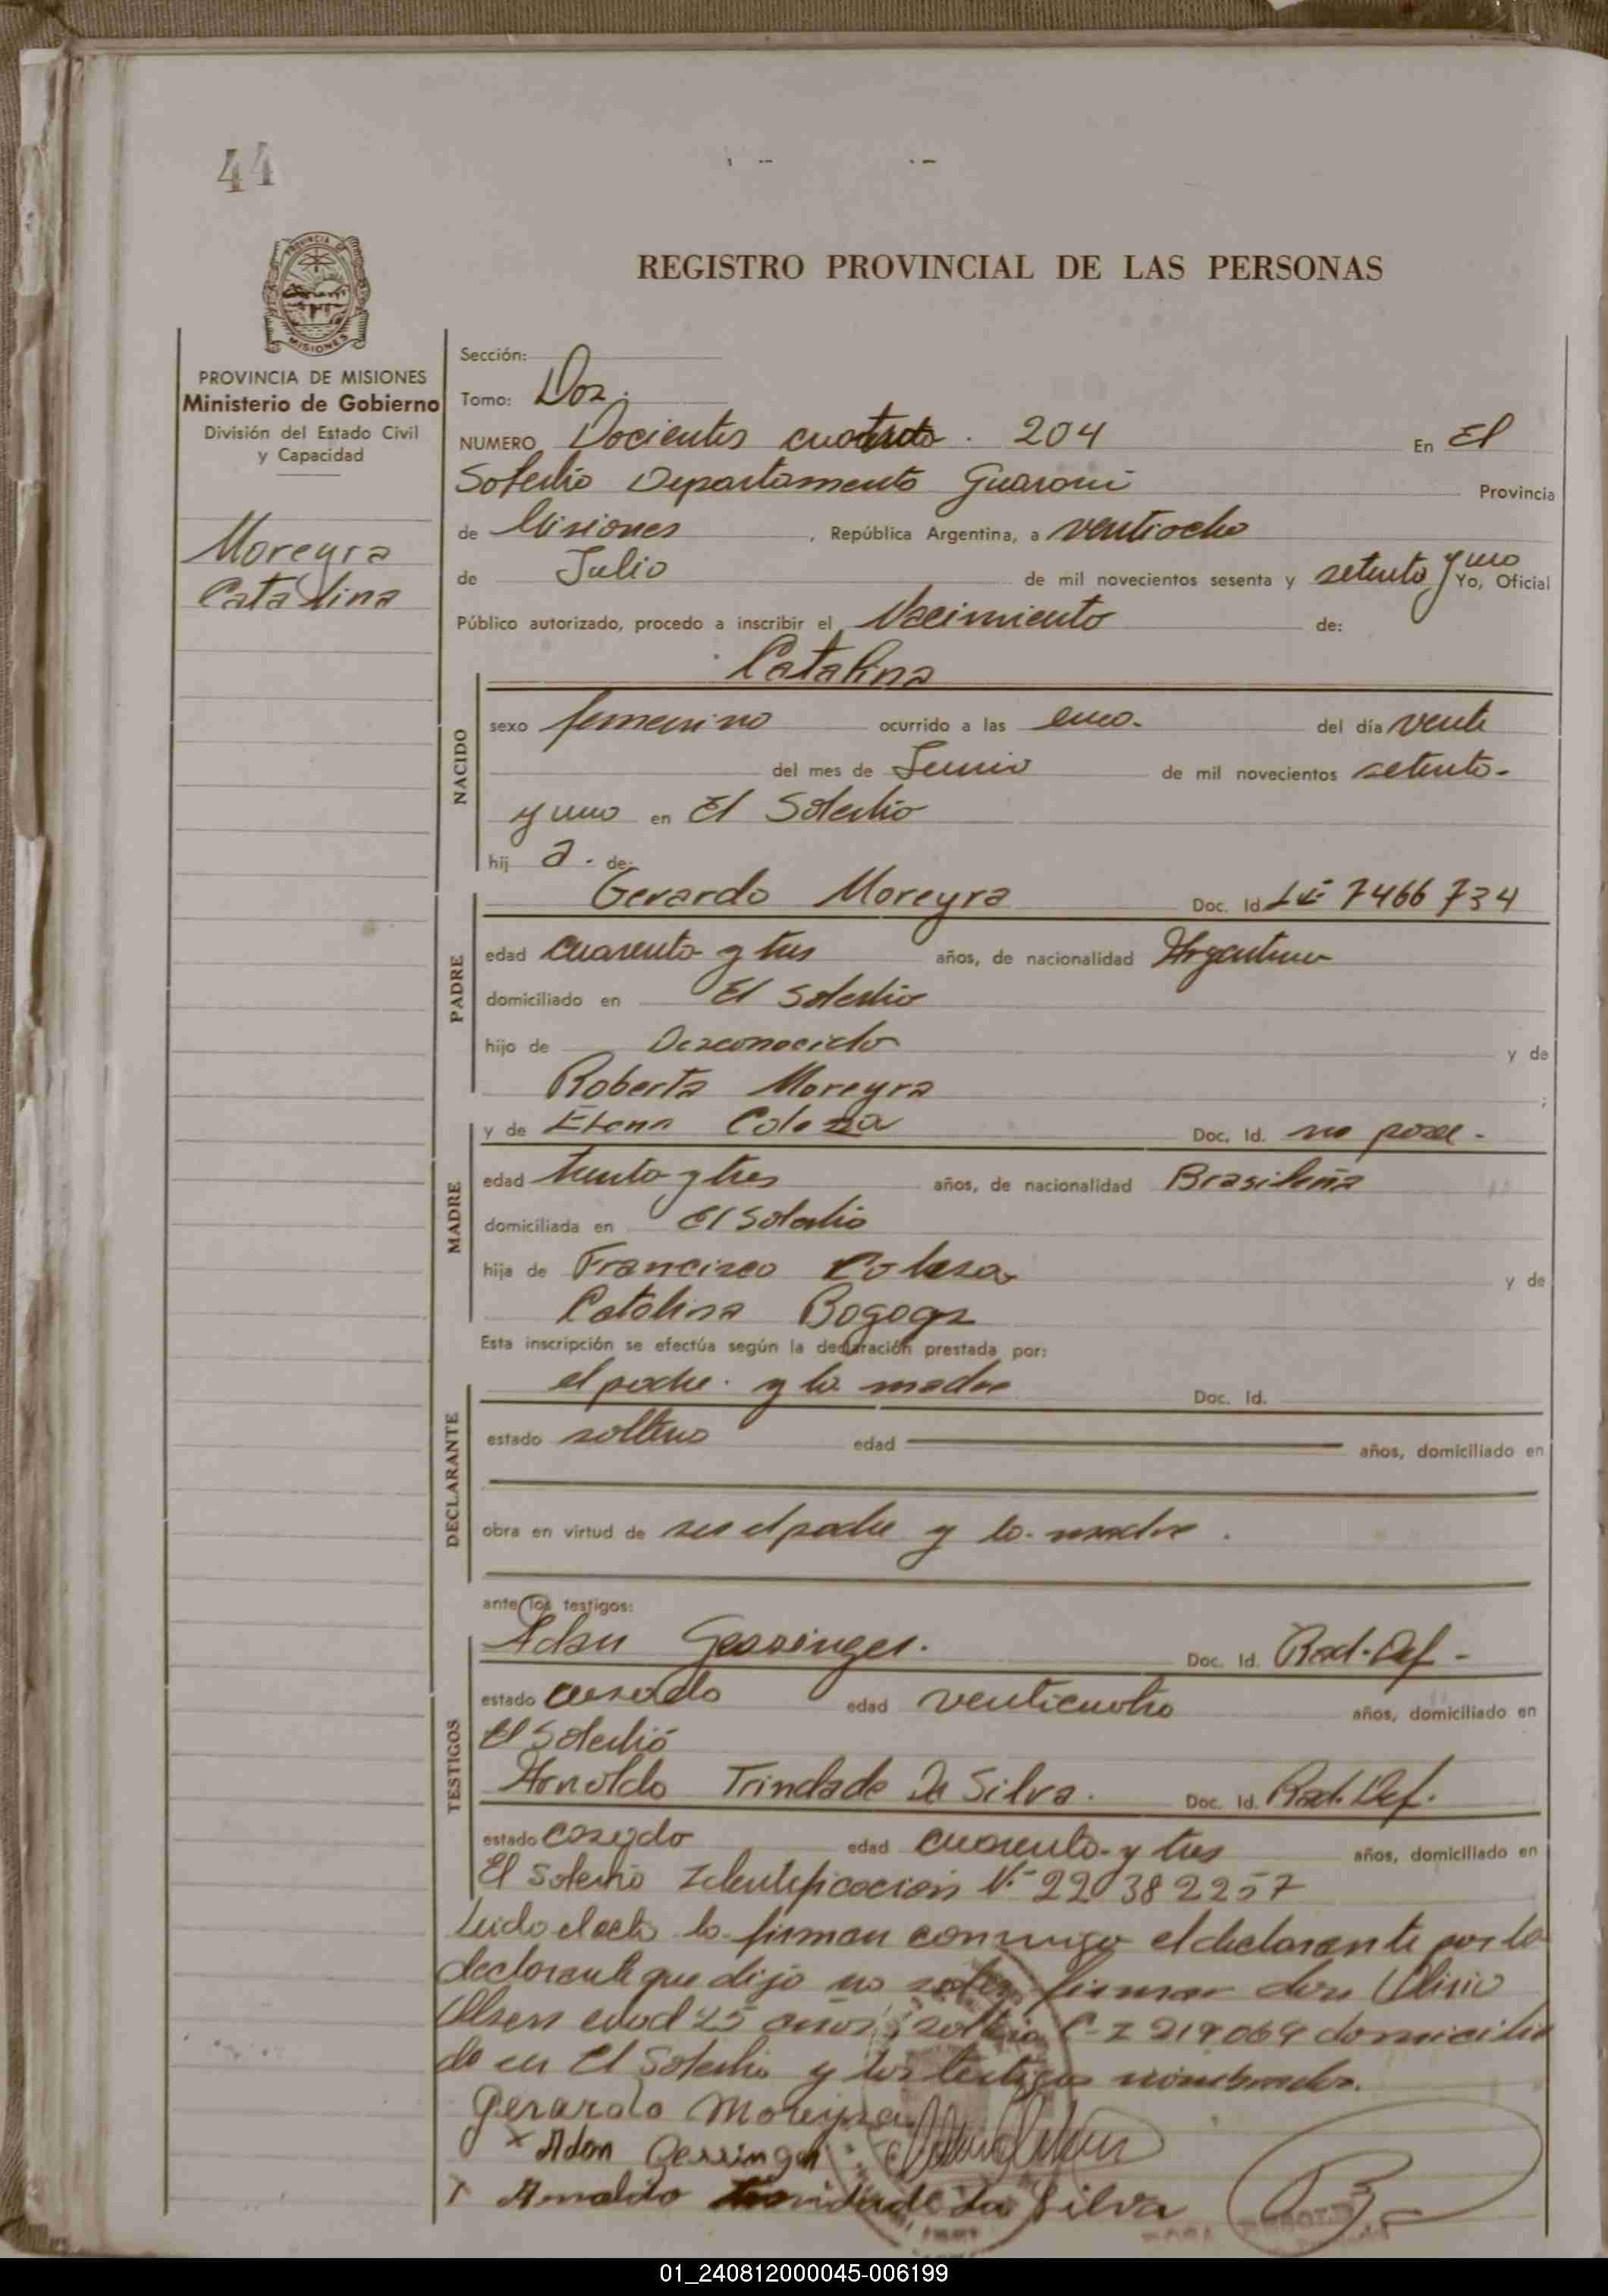 44
PROVINCIA DE MISIONES
REGISTRO PROVINCIAL DE LAS PERSONAS
PROVINCIA DE MISIONES
Ministerio de Gobierno
División del Estado Civil
y Capacidad
Moreyra
Catalina
Sección:
Tomo: Dos.
NUMERO Docientos cuatro. 204 En El
Soberbio Departamento Guarani Provincia
de Misiones, República Argentina, a ventiocho
de Julio de mil novecientos sesenta y setenta y uno Yo, Oficial
Público autorizado, procedo a inscribir el Nacimiento de:
Catalina
NACIDO
sexo femenino ocurrido a las cinco. del día vente
del mes de Junio de mil novecientos setenta-
y uno en El Soberbio
hij a. de:
PADRE
Gerardo Moreyra Doc. Id. LE 7466734
edad cuarenta y tres años, de nacionalidad Argentino
domiciliado en El Soberbio
hijo de Desconocido y de
Roberta Moreyra ;
MADRE
y de Elena Doc. Id. no posee-
edad trenta y tres años, de nacionalidad Brasileña
domiciliada en El Soberbio
hija de Francisco y de
Catalina Bogoga
Esta inscripción se efectúa según la declaración prestada por:
DECLARANTE
el padre. y la madre Doc. Id.
estado soltero edad años, domiciliado en
obra en virtud de ser el padre y la madre.
ante los testigos:
TESTIGOS
Adan Gessinger. Doc. Id. Rad. Def-
estado casado edad venticuatro años, domiciliado en
El Soberbio
Arnoldo Trindade Da Silva. Doc. Id. Rad. Def.
estado casado edad cuarenta y tres años, domiciliado en
El Soberbio Identificacion N° 22382257
Leido el acta la firman conmigo el declarante por la
declarante que dijo no saber firmar don
Olsen edad 25 años, soltero C-I 219064 domicilia
do en El Soberbio y los testigos nombrados.
Gerardo Moreyra
x Adan Gessinger
x Arnoldo Trindade Da Silva
01_240812000045-006199